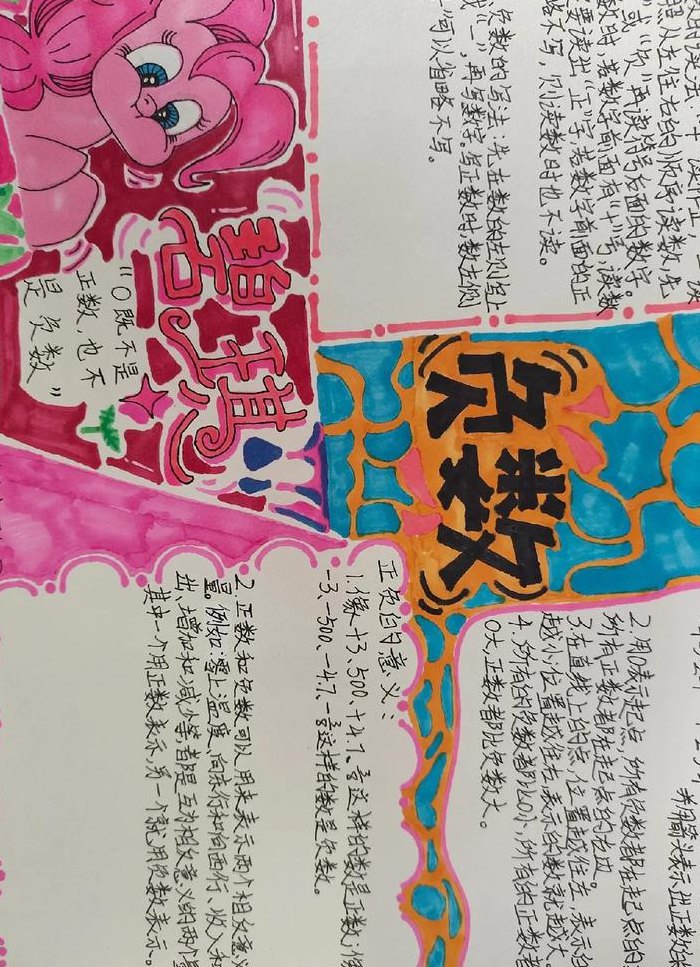 照从左往右的顺序读数,先
“或“负”再读符号后面的数字
数时,若数字前面有“+”号,读数
要读出“正”字,若数字前面的正
略不写,则读数时也不读。
负数的写法:先在数的左侧写上
或“-”,再写数字。写正数时,数左侧
可以省略不写。
碧琪
“0既不是
正数、也不
是负数”
负数
并用箭头表示出正数的
2.用0表示起点,所有负数都在起点的
所有正数都在起点的右边。
3.在直线上的点,位置越往左,表示的
越小;位置越往右,表示的数就越大。
4.所有的负数都比0小,所有的正数都
0大,正数都比负数大。
正负的意义:
1.像+3、500、+4.7、这样的数是正数;像
-3、-500、-4.7、这样的数是负数。
2.正数和负数可以用来表示两个相反意义
量。例如:零上温度、向东行和向西行、收入和
出、增加和减少等都是互为相反意义的两个量
其中一个用正数表示,另一个就用负数表示。